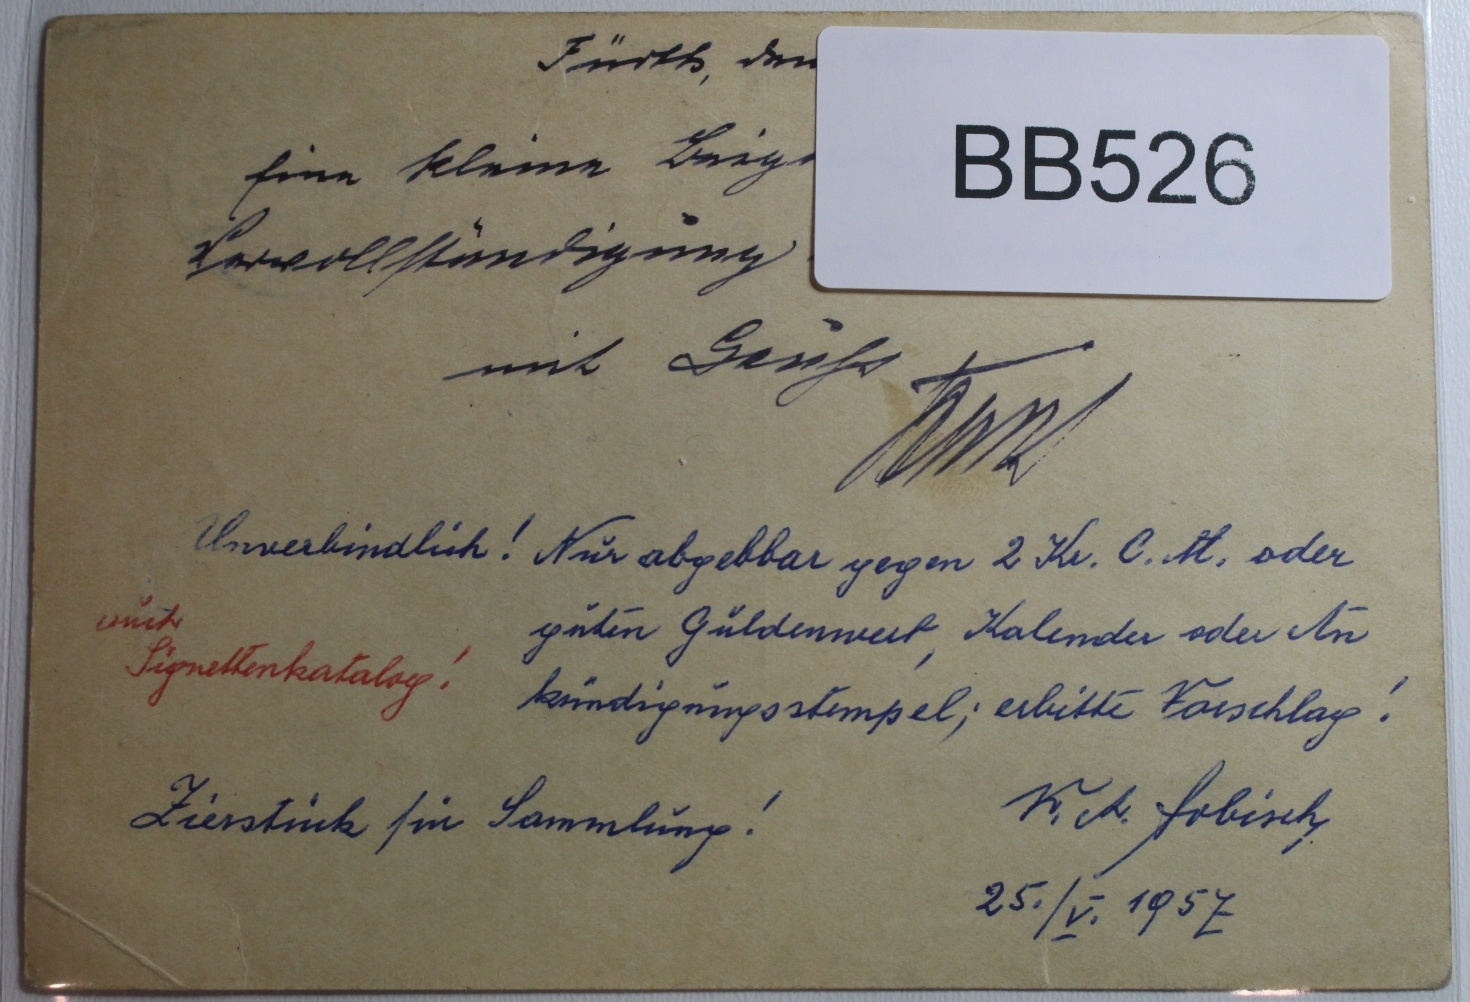 Fürth, den
BB526
Eine kleine
Vervollständigung
mit Gruß
Unverbindlich! Nur abgebbar gegen 2 Kr. C. M. oder
guten Guldenwert, Kalender oder An
kündigungsstempel; erbitte Vorschlag!
auch
Signettenkatalog!
Zierstück für Sammlung!
25./V. 1957